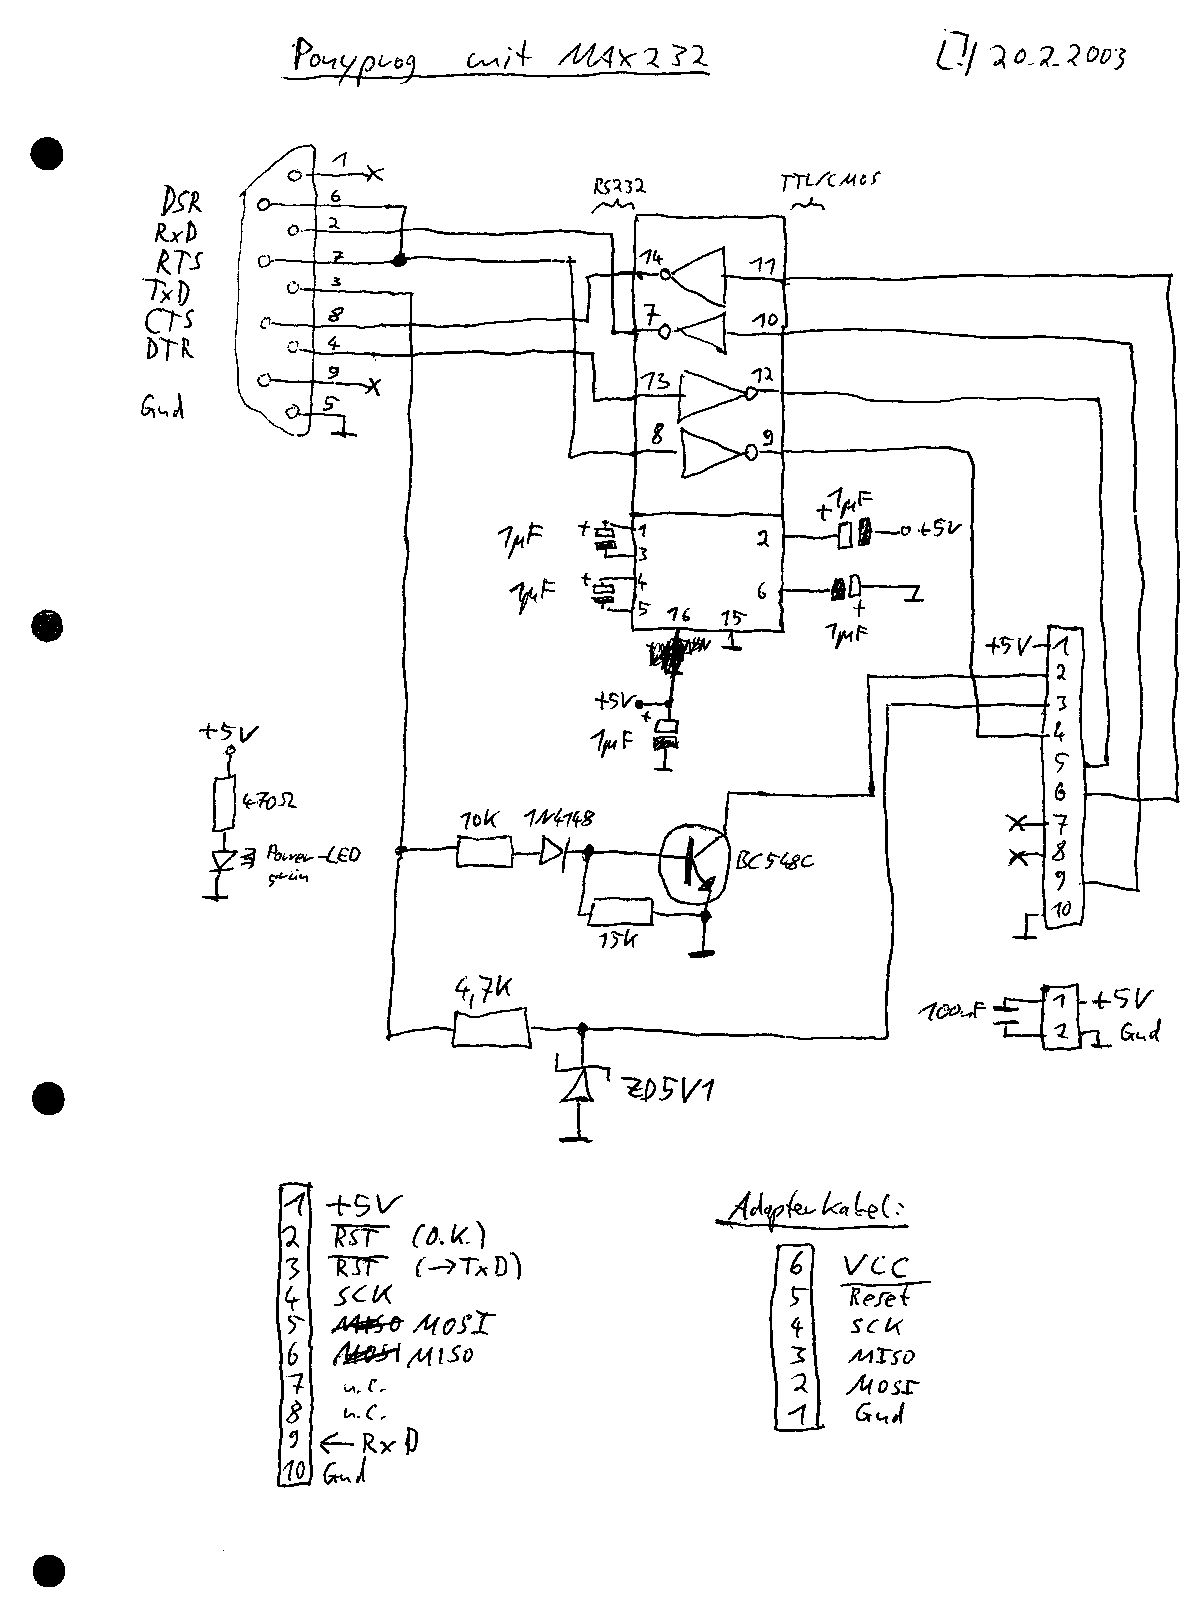 Ponyprog mit MAX232
20.2.2003
1
DSR
6
RxD
2
RTS
7
TxD
3
CTS
8
DTR
4
9
Gnd
5
RS232
TTL/CMOS
14
11
7
10
13
12
8
9
1µF
+
1
3
1µF
+
4
5
2
+
1µF
+5V
6
+
1µF
16
15
+5V
+
1µF
+5V
470Ω
Power-LED
grün
10K
1N4148
BC548C
15K
4,7K
ZD5V1
+5V
1
2
3
4
5
6
7
8
9
10
100nF
1
+5V
2
Gnd
1 +5V
2 RST (O.K.)
3 RST (→TxD)
4 SCK
5 MISO MOSI
6 MOSI MISO
7 n.c.
8 n.c.
9 ← RxD
10 Gnd
Adapterkabel:
6 VCC
5 Reset
4 SCK
3 MISO
2 MOSI
1 Gnd